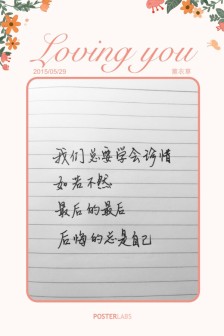 Loving you
2015/05/29
我们总要学会珍惜
如若不然
最后的最后
后悔的总是自己
POSTERLABS